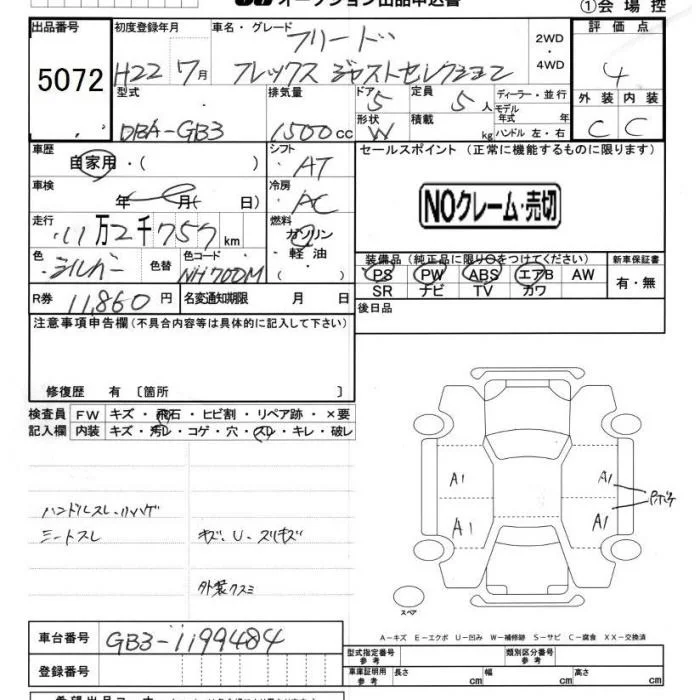 オークション出品申込書
①会場控
出品番号
5072
初度登録年月
H22 7月
車名・グレード
フリード
フレックス ジャストセレクション
2WD
・
4WD
評価点
4
外装 内装
C C
型式
DBA-GB3
排気量
1500cc
ドア 5
形状 W
定員 5人
積載 kg
ディーラー・並行
モデル年式 年
ハンドル 左・右
車歴
自家用・( )
シフト
AT
車検
年 月( 日)
冷房
AC
走行
11万2千757km
燃料
ガソリン
・軽油
・( )
色
シルバー
色替
色コード
NH700M
R券 11,860円
名変通知期限 月 日
セールスポイント (正常に機能するものに限ります)
NOクレーム・売切
装備品(純正品に限り○をつけてください)
PS PW ABS エアB AW
SR ナビ TV カワ
新車保証書
有・無
後日品
注意事項申告欄(不具合内容等は具体的に記入して下さい)
修復歴 有 〔箇所 〕
検査員 FW キズ・飛石・ヒビ割・リペア跡・×要
記入欄 内装 キズ・汚レ・コゲ・穴・スレ・キレ・破レ
ハンドルスレ・ハゲ
シートスレ
キズ、U・スリキズ
外装クスミ
A1 A1
A1 A1
スペア
A－キズ E－エクボ U－凹み W－補修跡 S－サビ C－腐食 XX－交換済
車台番号 GB3-1199484
登録番号
型式指定番号 参考
類別区分番号 参考
車庫証明用 参考 長さ cm 幅 cm 高さ cm